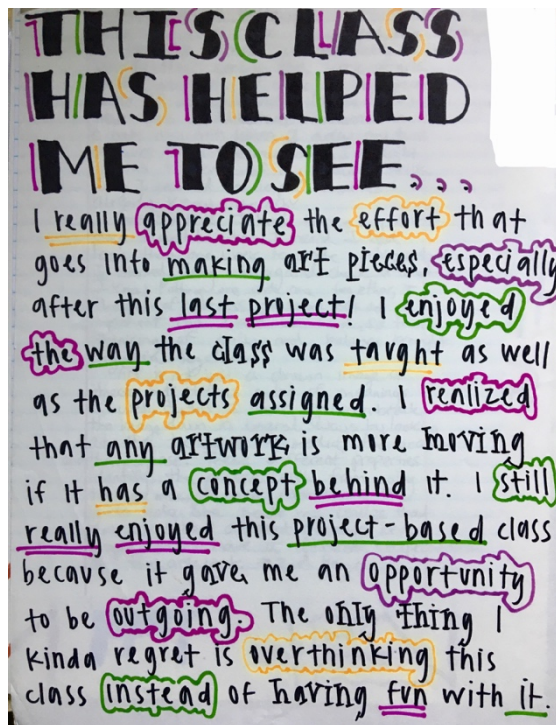 THIS CLASS
HAS HELPED
ME TO SEE...
I really appreciate the effort that
goes into making art pieces, especially
after this last project! I enjoyed
the way the class was taught as well
as the projects assigned. I realized
that any artwork is more moving
if it has a concept behind it. I still
really enjoyed this project-based class
because it gave me an opportunity
to be outgoing. The only thing I
kinda regret is overthinking this
class instead of having fun with it